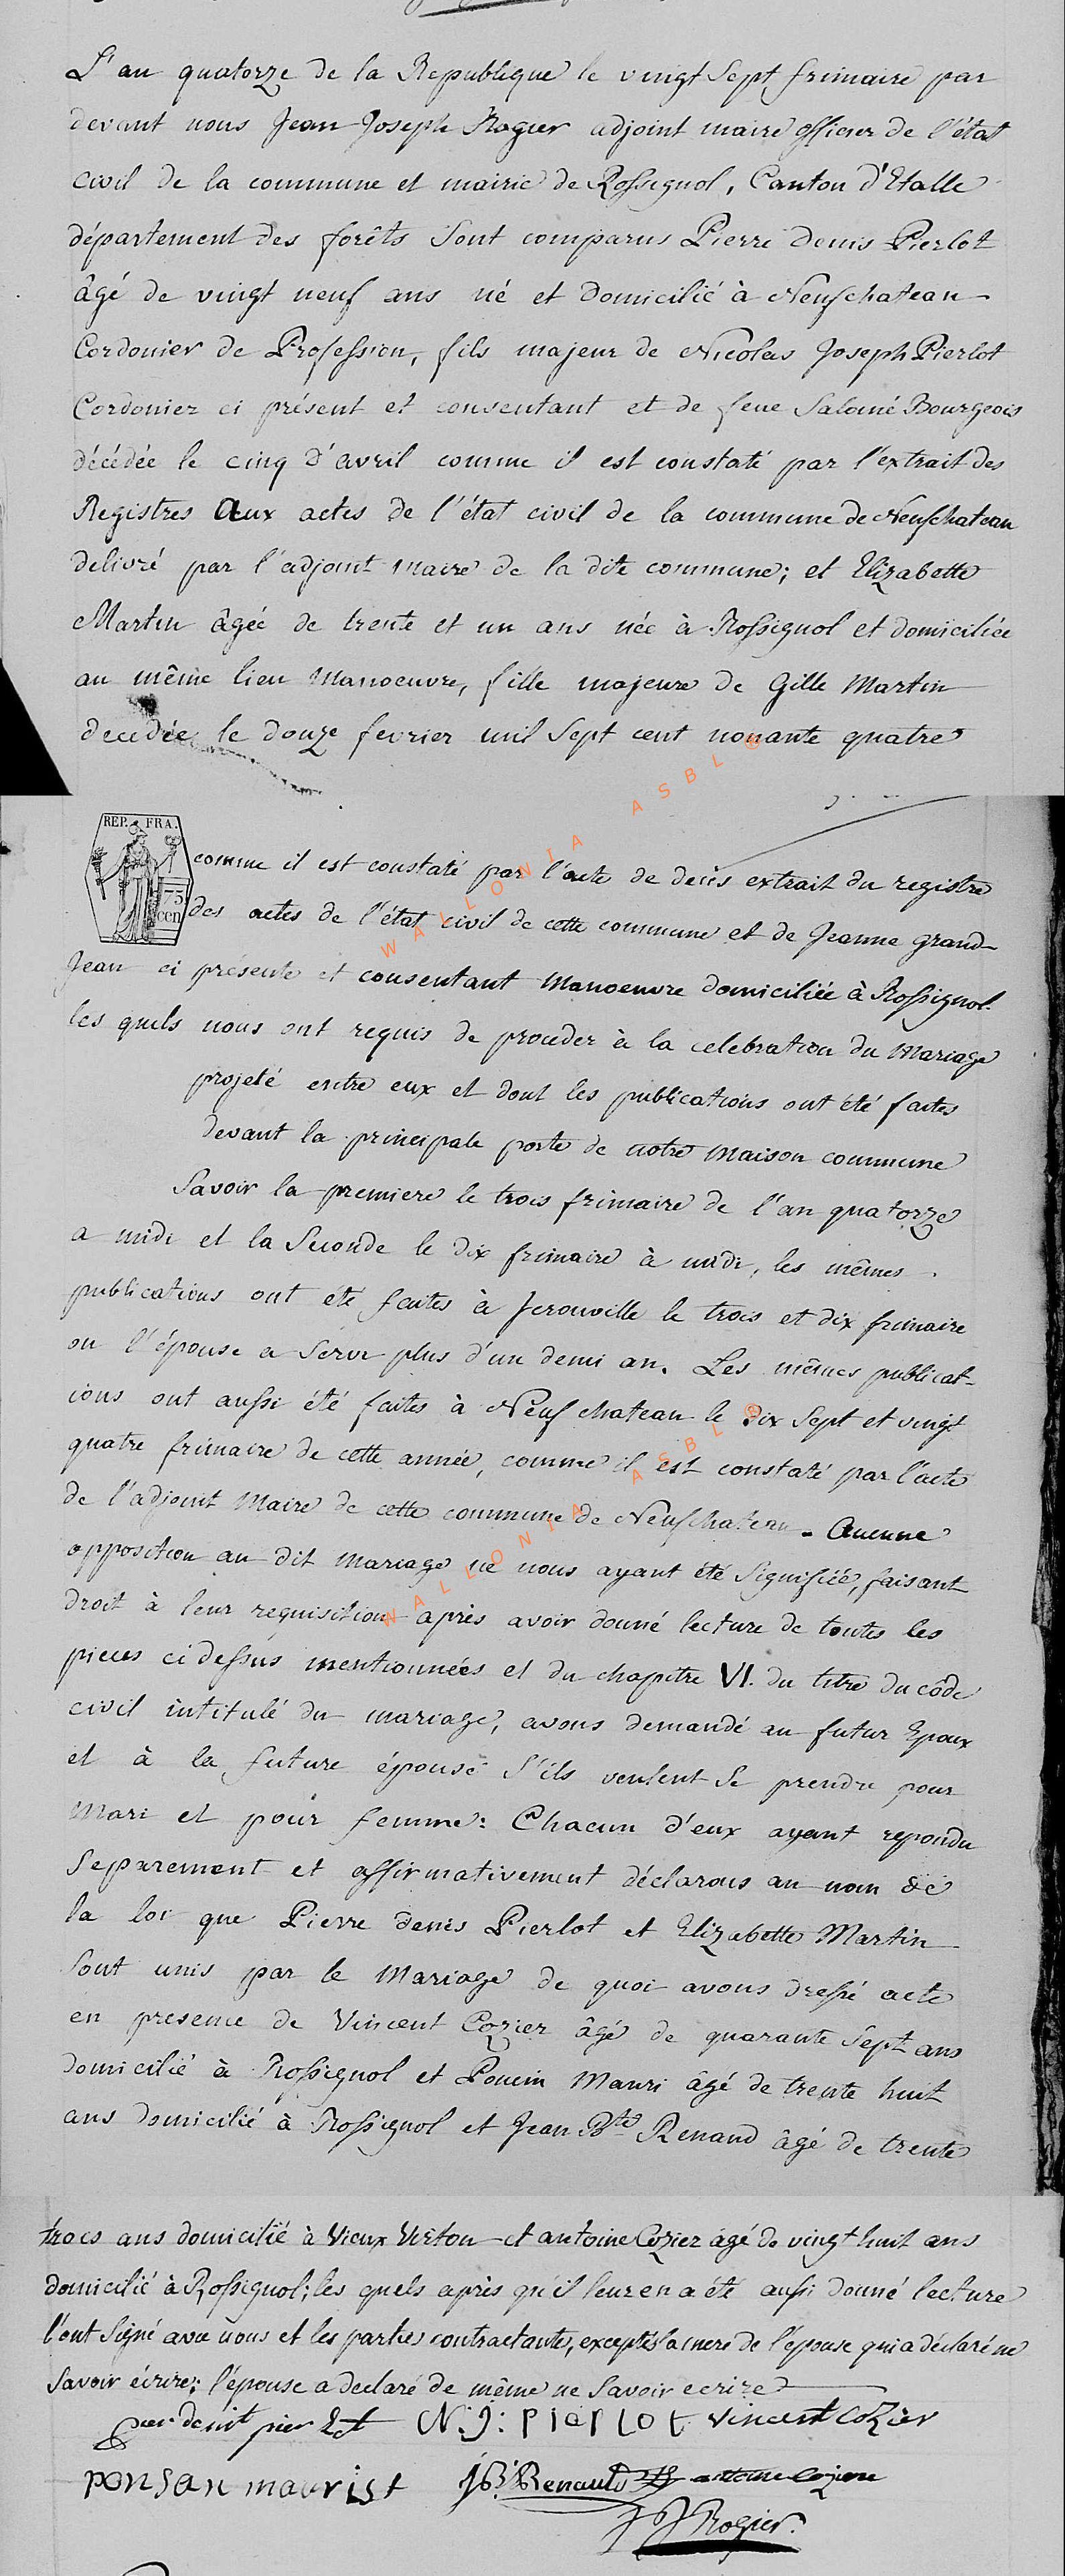 L'an quatorze de la Republique le vingt Sept frimaire par
devant nous Jean Joseph Rogier adjoint maire officier de l'état
civil de la commune et mairie de Rossignol, Canton d'Etalle
département des forêts Sont comparus Pierre Denis Pierlot
âgé de vingt neuf ans né et domicilié à Neufchateau
Cordonier de Profession, fils majeur de Nicolas Joseph Pierlot
Cordonier ci présent et consentant et de feue Salomé Bourgeois
décédée le cinq d'avril comme il est constaté par l'extrait des
Registres Aux actes de l'état civil de la commune de Neufchateau
delivré par l'adjoint maire de la dite commune; et Elizabette
Martin âgée de trente et un ans née à Rossignol et domiciliée
au même lieu Manoeuvre, fille majeure de Gille Martin
decedée le douze fevrier mil Sept cent nonante quatre
REP. FRA.
75 cen
comme il est constaté par l'acte de decès extrait du registre
des actes de l'état civil de cette commune et de Jeanne grand-
Jean ci présente et consentant Manoeuvre domiciliée à Rossignol.
les quels nous ont requis de proceder à la celebration du Mariage
projeté entre eux et dont les publications ont été faites
devant la principale porte de notre maison commune
Savoir la premiere le trois frimaire de l'an quatorze
a midi et la Seconde le dix frimaire à midi, les mêmes
publications ont été faites à Jerouville le trois et dix frimaire
ou l'épouse a Servi plus d'un demi an. Les mêmes publicat-
ions ont aussi été faites à Neufchateau le dix Sept et vingt
quatre frimaire de cette année, comme il est constaté par l'acte
de l'adjoint Maire de cette commune de Neufchateau - Aucune
opposition au dit Mariage ne nous ayant été Signifiée, faisant
droit à leur requisition après avoir donné lecture de toutes les
pieces ci dessus mentionnées et du chapitre VI. du titre du côde
civil intitulé du mariage, avons demandé au futur Epoux
et à la future épouse S'ils veulent Se prendre pour
Mari et pour femme: Chacun d'eux ayant repondu
Separement et affirmativement déclarons au nom de
la loi que Pierre denis Pierlot et Elizabette Martin
Sont unis par le Mariage de quoi avons dressé acte
en presence de Vincent Cozier âgé de quarante Sept ans
domicilié à Rossignol et Poncin Mauri âgé de trente huit
ans domicilié à Rossignol et Jean Bte Renaud âgé de trente
trois ans domicilié à Vieux Virton et antoine Cozier âgé de vingt huit ans
domicilié à Rossignol; les quels après qu'il leur en a été aussi donné lecture
l'ont Signé avec nous et les parties contractantes, excepté la mere de l'épouse qui a déclaré ne
Savoir écrire; l'épouse a declaré de même ne Savoir ecrire
N. J: pierlot vincent coZier
ponsan maurist J.B. Renauld antoine
J J Rogier.
WALLONIA ASBL ®
WALLONIA ASBL ®